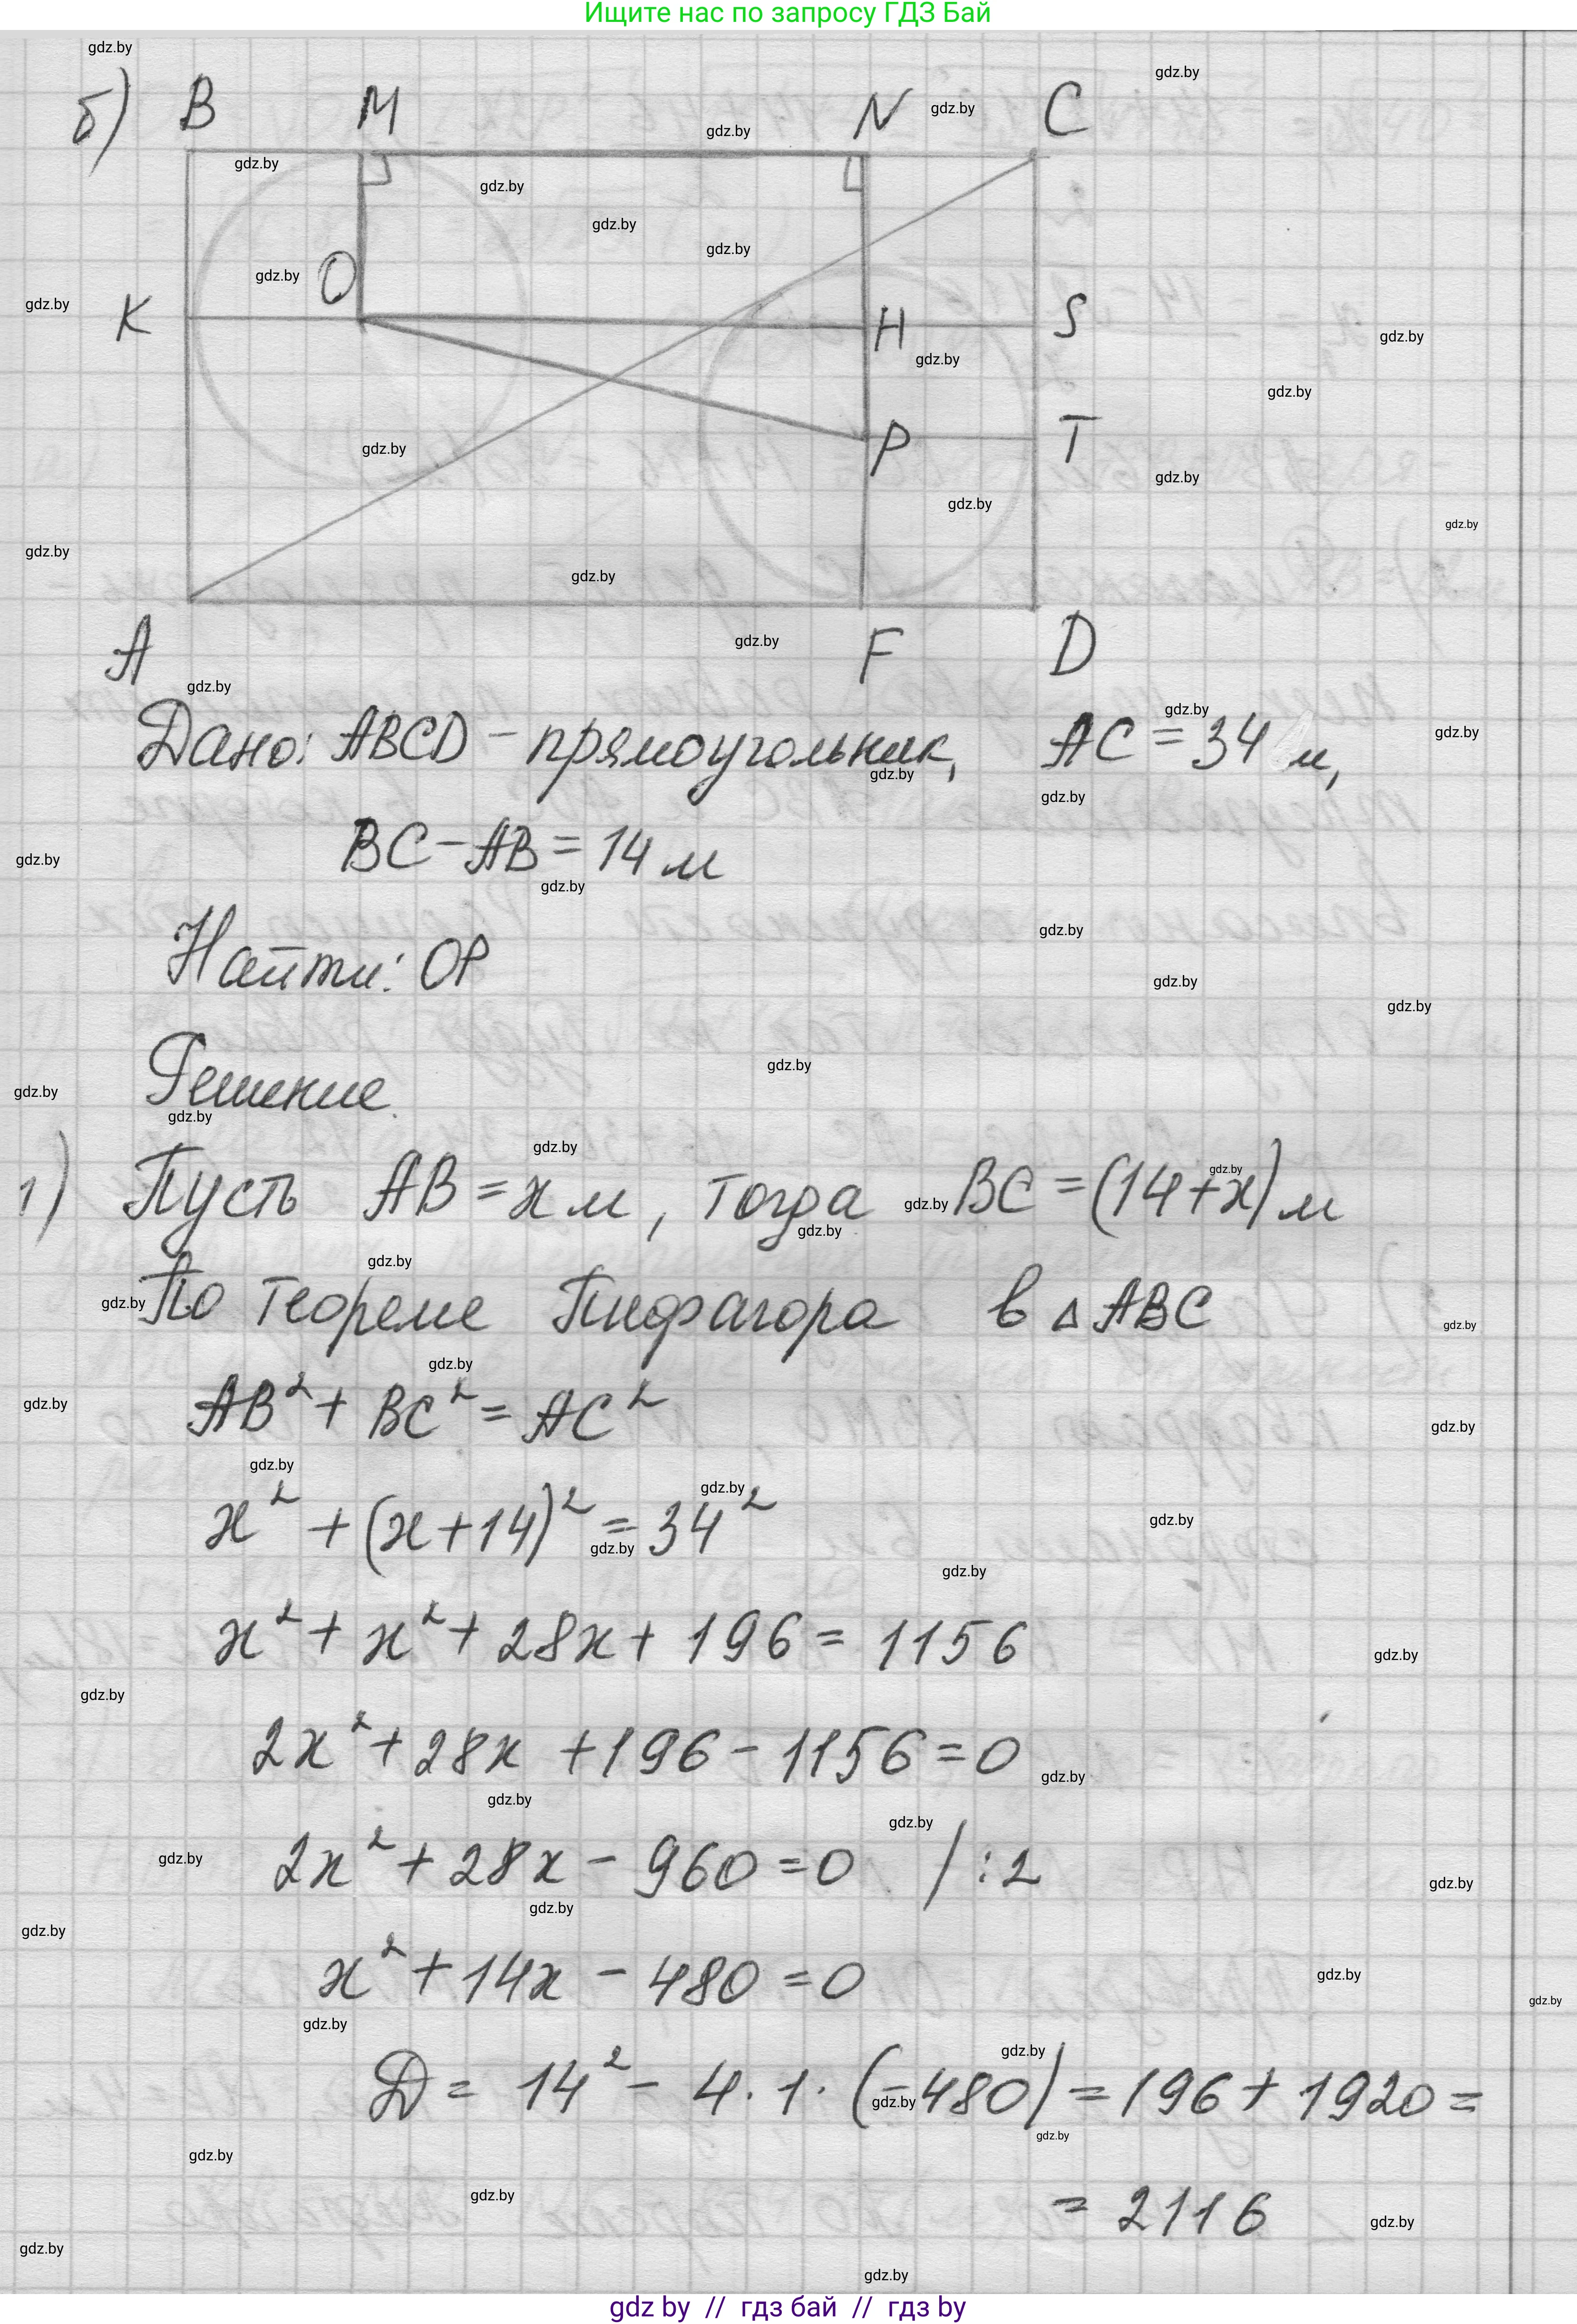 Ищите нас по запросу ГДЗ Бай
б) B M N C
K O H S
P T
A F D
Дано: ABCD - прямоугольник, AC = 34 м,
BC - AB = 14 м
Найти: OP
Решение.
1) Пусть AB = x м, тогда BC = (14 + x) м
По теореме Пифагора в △ ABC
AB² + BC² = AC²
x² + (x + 14)² = 34²
x² + x² + 28x + 196 = 1156
2x² + 28x + 196 - 1156 = 0
2x² + 28x - 960 = 0 / : 2
x² + 14x - 480 = 0
D = 14² - 4 · 1 · (-480) = 196 + 1920 =
= 2116
gdz by // гдз бай // гдз by